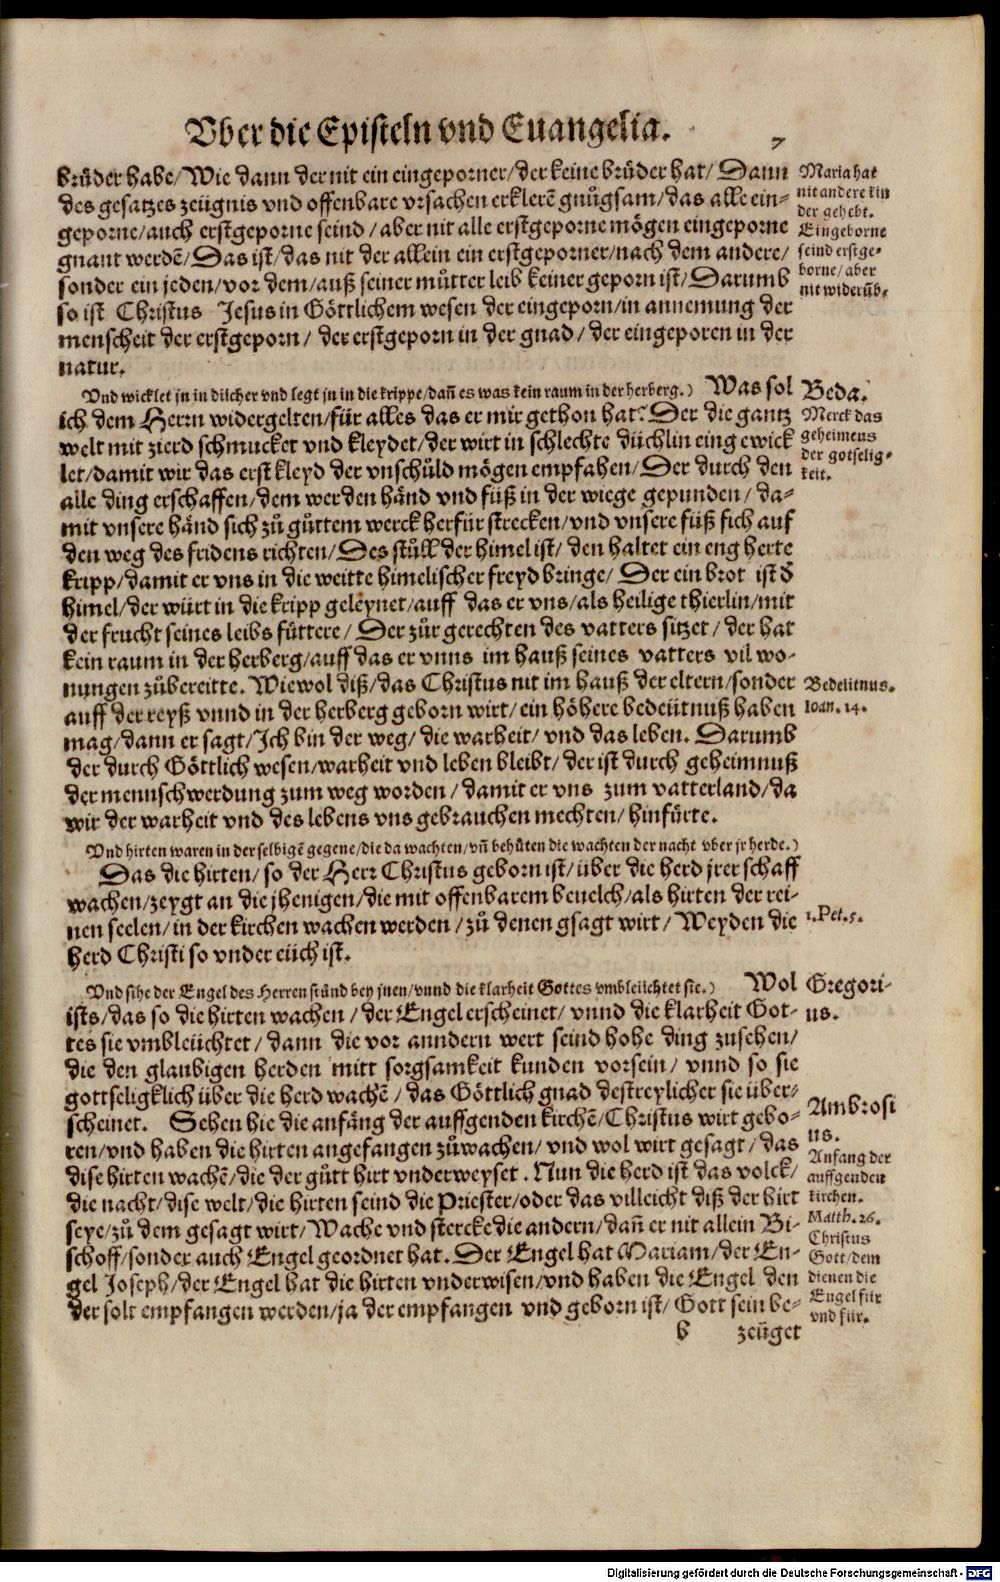 Vber die Episteln vnd Euangelia.
7
brůder habe/Wie dann der nit ein eingeporner/der keine brůder hat/Dann
des gesatzes zeügnis vnd offenbare vrsachen erklerẽ gnůgsam/das alle ein-
geporne/auch erstgeporne seind/aber nit alle erstgeporne mögen eingeporne
gnant werdẽ/Das ist/das nit der allein ein erstgeporner/nach dem andere/
sonder ein jeden/vor dem/auß seiner můtter leib keiner geporn ist/Darumb
so ist Christus Jesus in Göttlichem wesen der eingeporn/in annemung der
menscheit der erstgeporn/ der erstgeporn in der gnad/ der eingeporen in der
natur.
Maria hat
nit andere kin
der gehebt.
Eingeborne
seind erstge-
borne/aber
nit widerůb-
Vnd wicklet jn in dücher vnd legt jn in die krippe/dañ es was kein raum in der herberg.) Was sol
ich dem Herrn widergelten/für alles das er mir gethon hat? Der die gantz
welt mit zierd schmucket vnd kleydet/der wirt in schlechte düchlin eingewick
let/damit wir das erst kleyd der vnschůld mögen empfahen/Der durch den
alle ding erschaffen/dem werden händ vnd füß in der wiege gepunden/ da-
mit vnsere händ sich zů gůttem werck herfür strecken/vnd vnsere füß sich auf
den weg des fridens richten/Des stůll der himel ist/ den haltet ein eng herte
kripp/damit er vns in die weitte himelischer freyd bringe/ Der ein brot ist d̕
himel/der würt in die kripp geleynet/auff das er vns/als heilige thierlin/mit
der frucht seines leibs füttere/ Der zůr gerechten des vatters sitzet/ der hat
kein raum in der herberg/auff das er vnns im hauß seines vatters vil wo-
nungen zůbereitte. Wiewol diß/das Christus nit im hauß der eltern/sonder
auff der reyß vnnd in der herberg geborn wirt/ ein höhere bedeütnuß haben
mag/dann er sagt/Ich bin der weg/ die warheit/ vnd das leben. Darumb
der durch Göttlich wesen/warheit vnd leben bleibt/ der ist durch geheimnuß
der mennschwerdung zum weg worden/ damit er vns zum vatterland/da
wir der warheit vnd des lebens vns gebrauchen mechten/ hinfürte.
Beda.
Merck das
geheimnus
der gotselig-
keit.
Bedeütnus.
Ioan. 14.
Vnd hirten waren in der selbigẽ gegene/die da wachten/vñ behůten die wachten der nacht vber jr herde.)
Das die hirten/ so der Herr Christus geborn ist/ über die herd jrer schaff
wachen/zeygt an die jhenigen/die mit offenbarem beuelch/als hirten der rei-
nen seelen/in der kirchen wachen werden/zů denen gsagt wirt/ Weyden die
herd Christi so vnder eüch ist.
1. Pet. 5.
Vnd sihe der Engel des Herren stůnd bey jnen/vnnd die klarheit Gottes vmbleüchtet sie.) Wol
ists/das so die hirten wachen/ der Engel erscheinet/ vnnd die klarheit Got-
tes sie vmbleüchtet/ dann die vor anndern wert seind hohe ding zusehen/
die den glaubigen herden mitt sorgsamkeit kunden vorsein/ vnnd so sie
gottseligklich über die herd wachẽ/ das Göttlich gnad destreylicher sie über-
scheinet. Sehen hie die anfäng der auffgenden kirchẽ/Christus wirt gebo-
ren/vnd haben die hirten angefangen zůwachen/ vnd wol wirt gesagt/ das
dise hirten wachẽ/die der gůtt hirt vnderweyset. Nun die herd ist das volck/
die nacht/dise welt/die hirten seind die Priester/oder das villeicht diß der hirt
seye/zů dem gesagt wirt/Wache vnd stercke die andern/dañ er nit allein Bi-
schoff/sonder auch Engel geordnet hat. Der Engel hat Mariam/der En-
gel Joseph/der Engel hat die hirten vnderwisen/vnd haben die Engel den
der solt empfangen werden/ja der empfangen vnd geborn ist/ Gott sein be-
Gregori-
us.
Ambrosi
us.
Anfang der
auffgenden
kirchen.
Matth. 26.
Christus
Gott/dem
dienen die
Engel für
vnd für.
b
zeüget
Digitalisierung gefördert durch die Deutsche Forschungsgemeinschaft - DFG